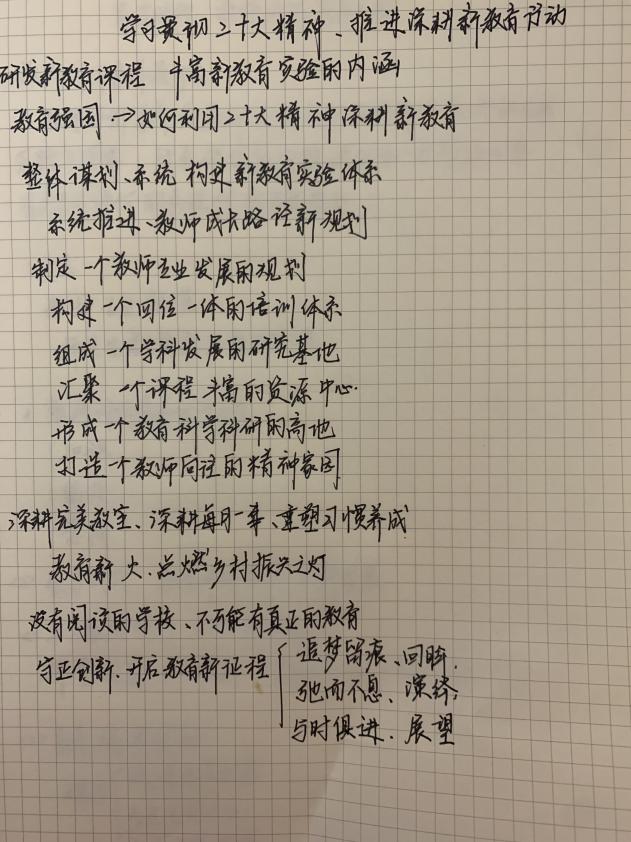 学习贯彻二十大精神、推进深耕新教育行动
研发新教育课程 丰富新教育实验的内涵
教育强国→如何利用二十大精神深耕新教育
整体谋划、系统构建新教育实验体系
系统推进、教师成长路径新规划
制定一个教师专业发展的规划
构建一个四位一体的培训体系
组成一个学科发展的研究基地
汇聚一个课程丰富的资源中心.
形成一个教育科学科研的高地
打造一个教师向往的精神家园
深耕完美教室、深耕每月一事、重塑习惯养成
教育新火.点燃乡村振兴之灯
没有阅读的学校、不可能有真正的教育
守正创新.开启教育新征程
追梦留痕、回眸.
弛而不息、演绎;
与时俱进.展望